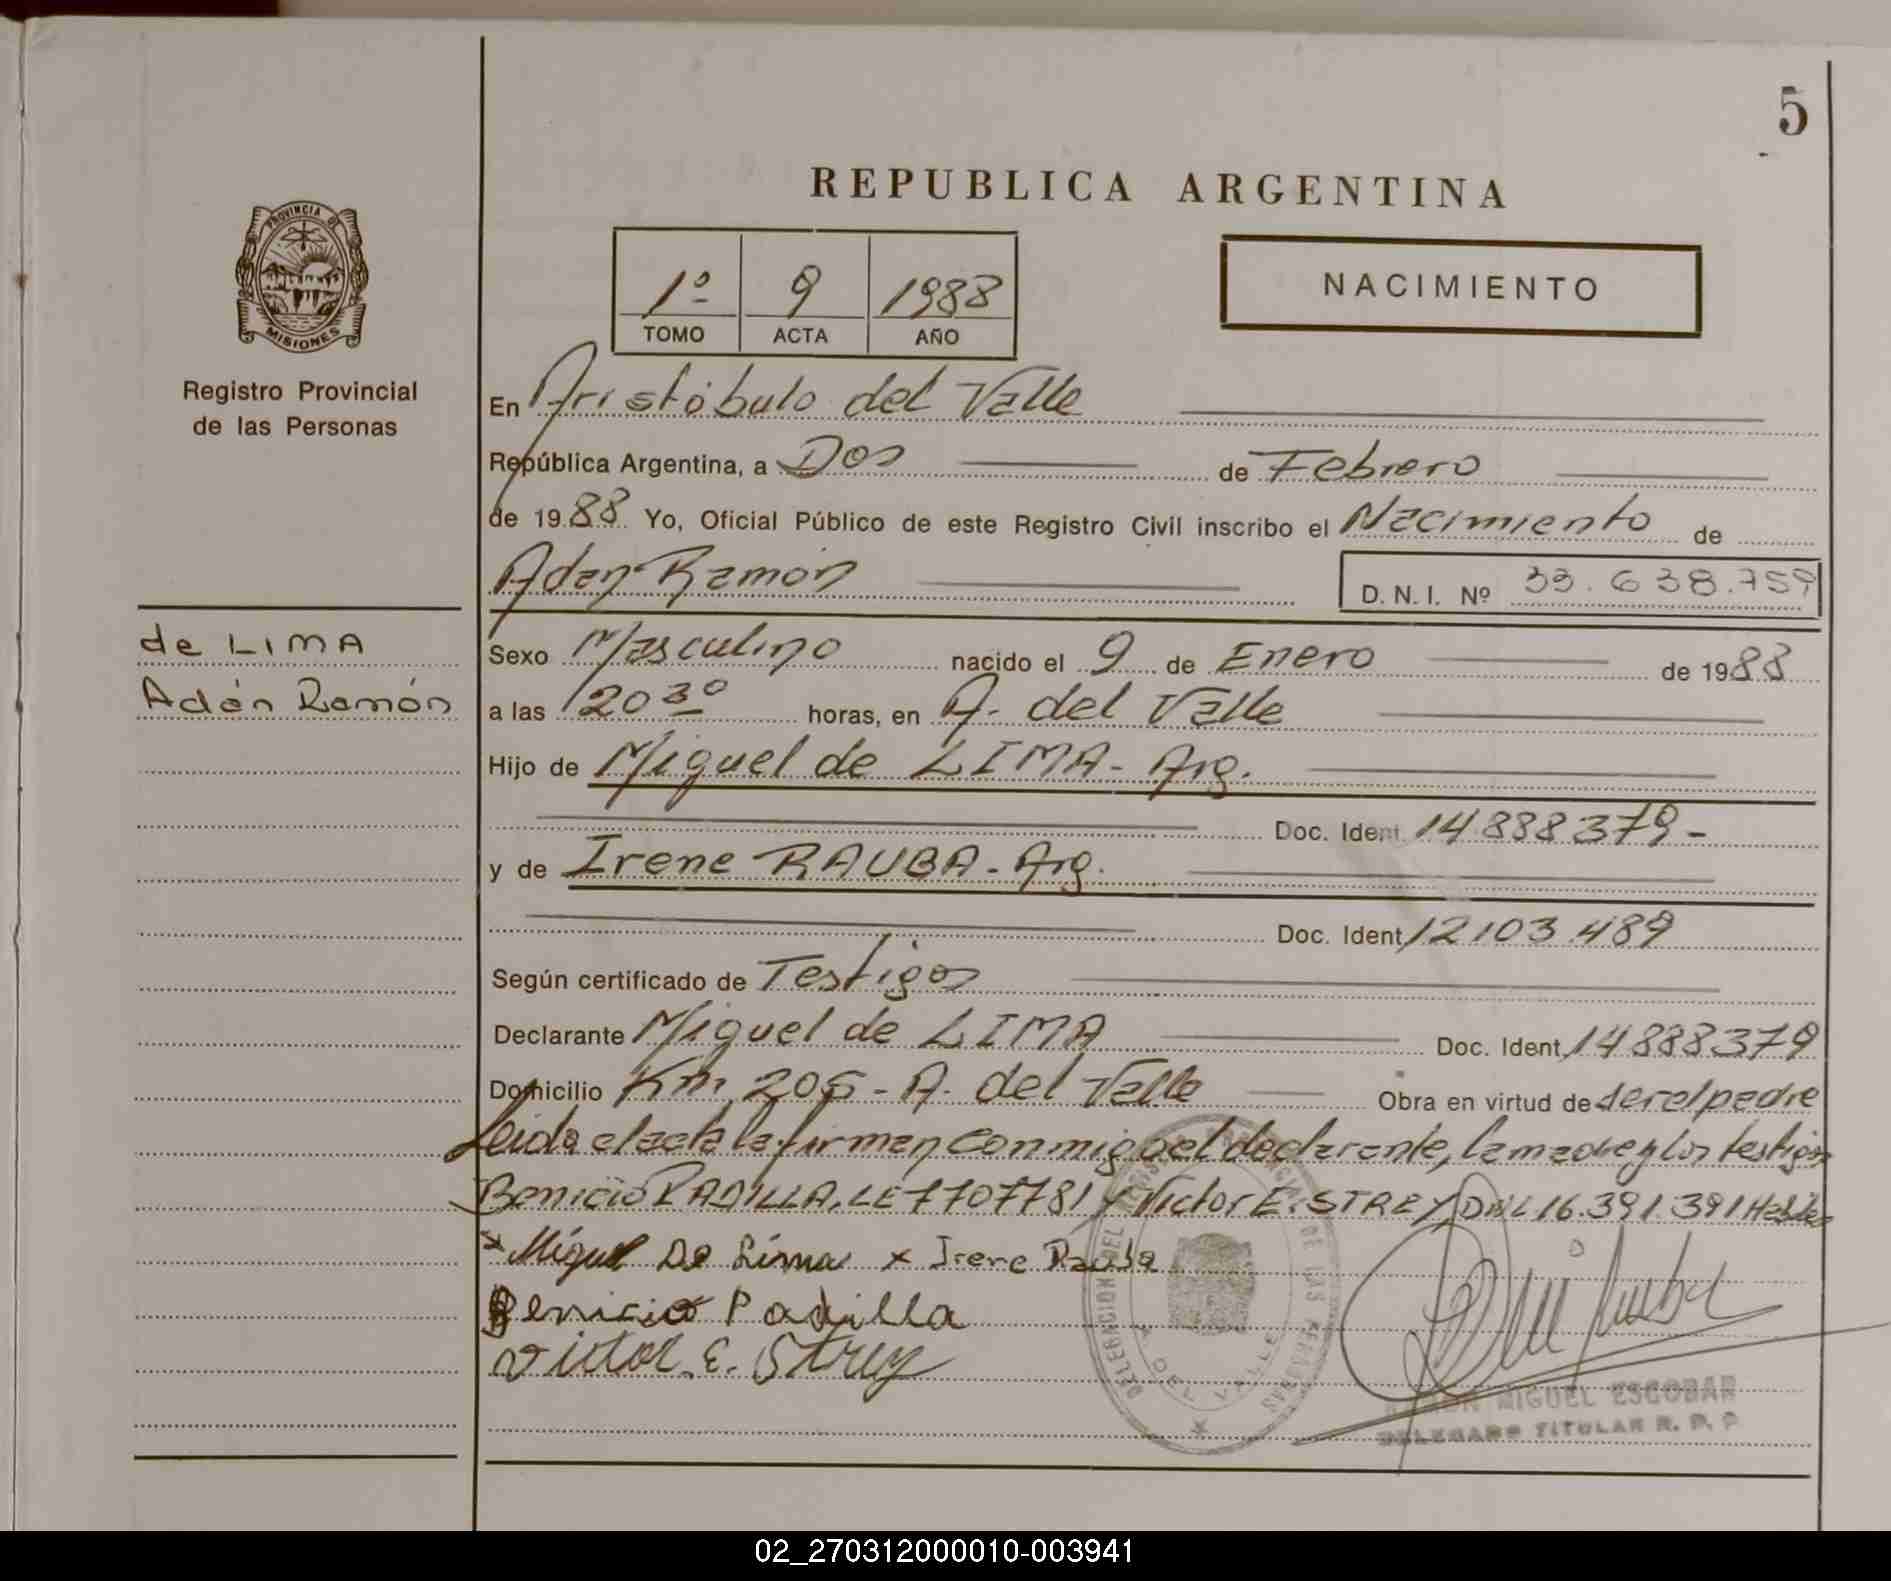 5
REPUBLICA ARGENTINA
PROVINCIA DE
MISIONES
Registro Provincial
de las Personas
1º 9 1988
TOMO ACTA AÑO
NACIMIENTO
En Aristóbulo del Valle
República Argentina, a Dos de Febrero
de 1988 Yo, Oficial Público de este Registro Civil inscribo el Nacimiento de
Adan Ramón
D. N. I. Nº 33.638.759
de LIMA
Adán Ramón
Sexo Masculino nacido el 9 de Enero de 1988
a las 20 30 horas, en A. del Valle
Hijo de Miguel de LIMA - Arg.
Doc. Ident. 14.888.379 -
y de Irene RAUBA - Arg.
Doc. Ident. 12.103.489
Según certificado de Testigos
Declarante Miguel de LIMA Doc. Ident. 14.888.379
Domicilio Km. 206 - A. del Valle Obra en virtud de ser el padre
Leida el acta la firman conmigo el declarante, la madre y los testigos
Benicio PADILLA, LE 7707781 y Victor E. STREY DNI 16.391.391
x Miguel De Lima x Irene Rauba
Benicio Padilla
Victor E. Strey
DELEGACION DEL REGISTRO PROVINCIAL DE LAS PERSONAS
A. DEL VALLE
RAMON MIGUEL ESCOBAR
DELEGADO TITULAR R. P. P.
02_270312000010-003941